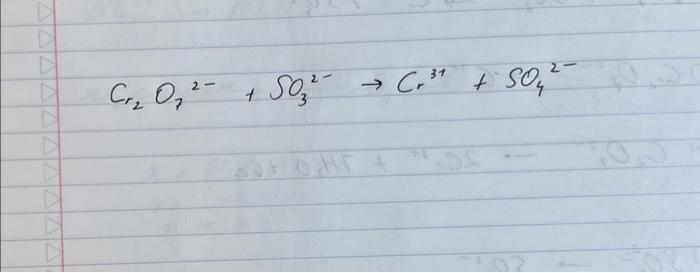 Cr₂O₇²⁻ + SO₃²⁻ → Cr³⁺ + SO₄²⁻